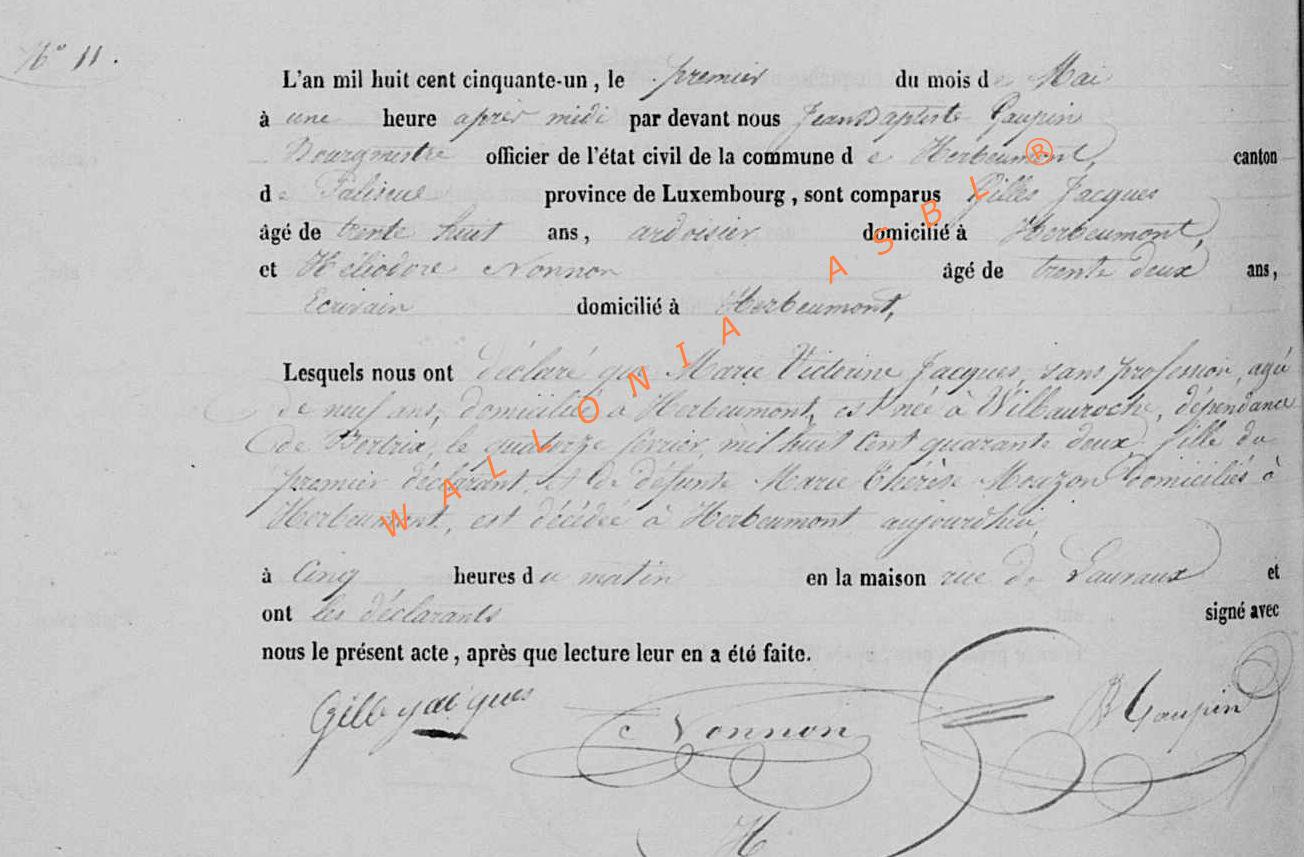 N° 11.
L'an mil huit cent cinquante-un, le premier du mois de Mai
à une heure après midi par devant nous Jean Baptiste Gaupin
Bourgmestre officier de l'état civil de la commune de Herbeumont, canton
de Paliseul province de Luxembourg, sont comparus Gilles Jacques
âgé de trente huit ans, ardoisier domicilié à Herbeumont,
et Héliodore Nonnon âgé de trente deux ans,
Ecrivain domicilié à Herbeumont,
Lesquels nous ont déclaré que Marie Victorine Jacques, sans profession, agée
de neuf ans, domiciliée à Herbeumont, est née à , dépendance
de Bertrix, le quatorze février, mil huit cent quarante deux, fille du
premier déclarant, et de défunte Marie Thérèse Mouzon domiciliés à
Herbeumont, est décédée à Herbeumont aujourd'hui,
à Cinq heures du matin en la maison rue de et
ont les déclarants signé avec
nous le présent acte, après que lecture leur en a été faite.
Gille jacques Nonnon B Gaupin
H
WALLONIA ASBL ®